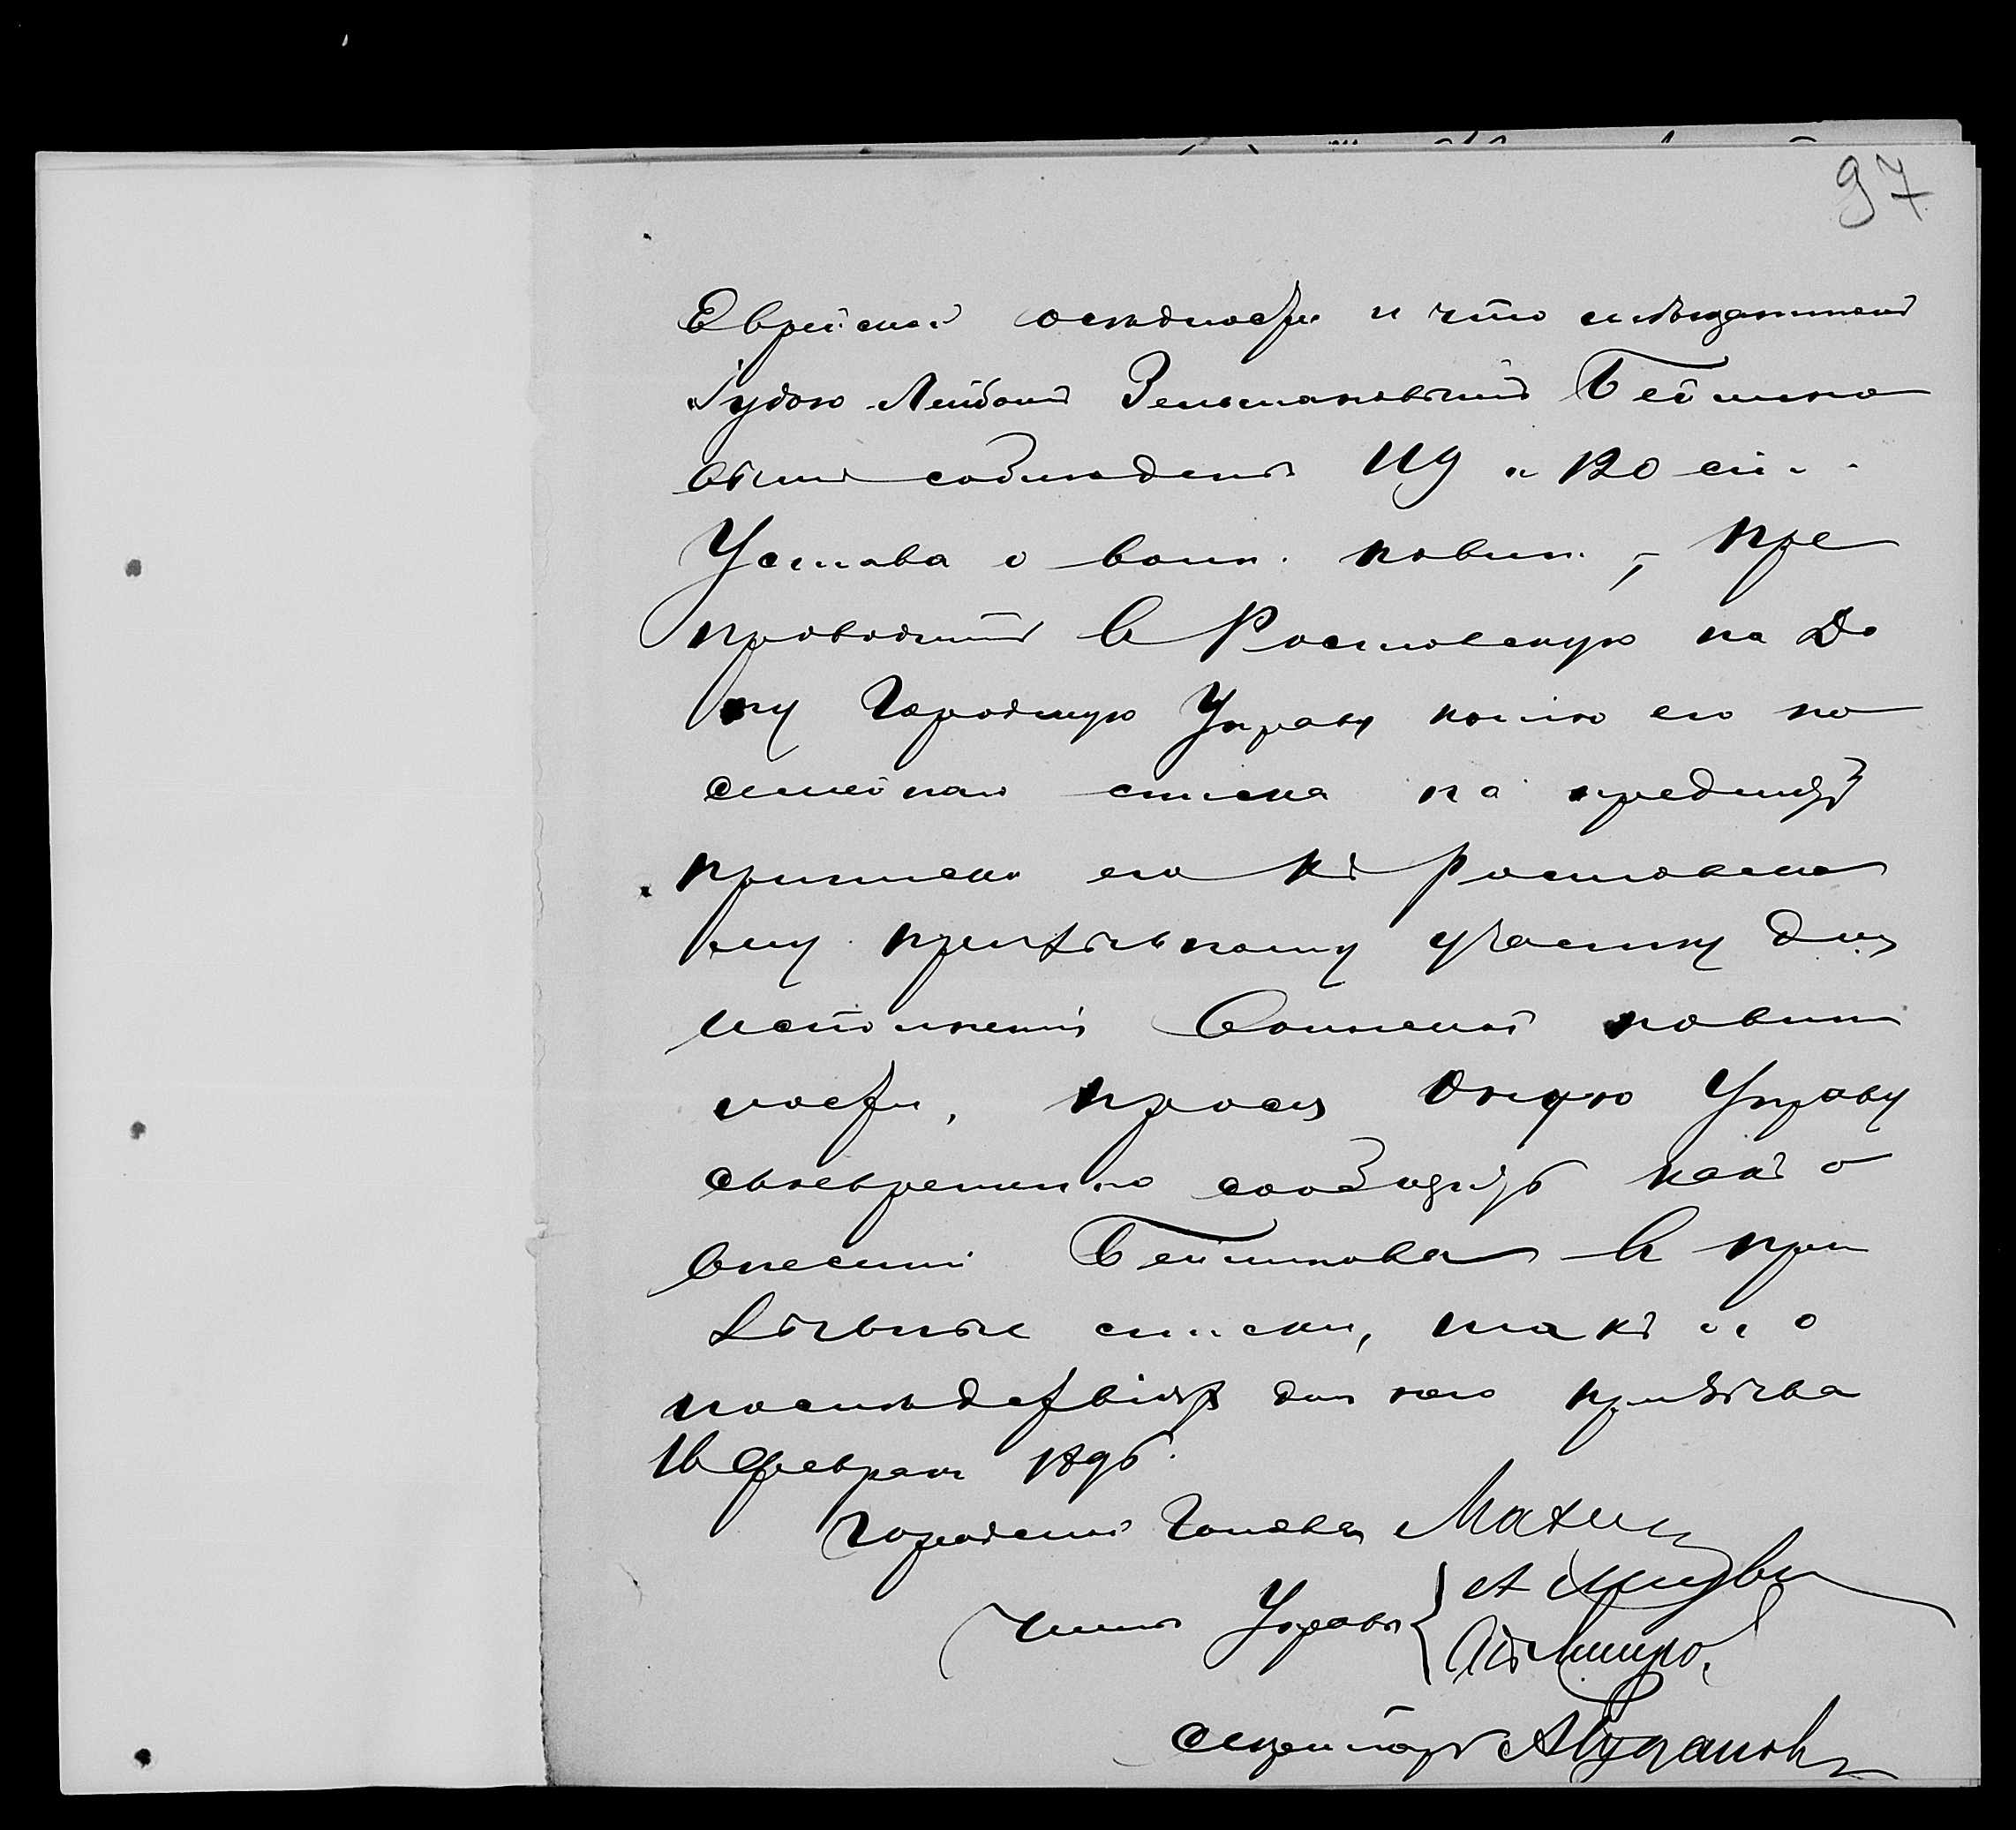 97
Еврейской осѣдлости и что мѣщаниномъ
Іудою Лейбой Зельмановымъ Бейлино
вымъ соблюдены 119 и 120 ст.
Устава о воин. повин., — пре
проводитъ въ Ростовскую на До
ну Городскую Управу копію его по
семейнаго списка на предметъ
приписки его къ Ростовско
му призывному участку для
исполненія воинской повин
ности, прося оную Управу
своевременно сообщить какъ о
внесеніи Бейлинова въ при
зывные списки, такъ и о
послѣдствіяхъ для него призыва
16 февраля 1896.
Городской Голова
Члены Управы
Секретарь